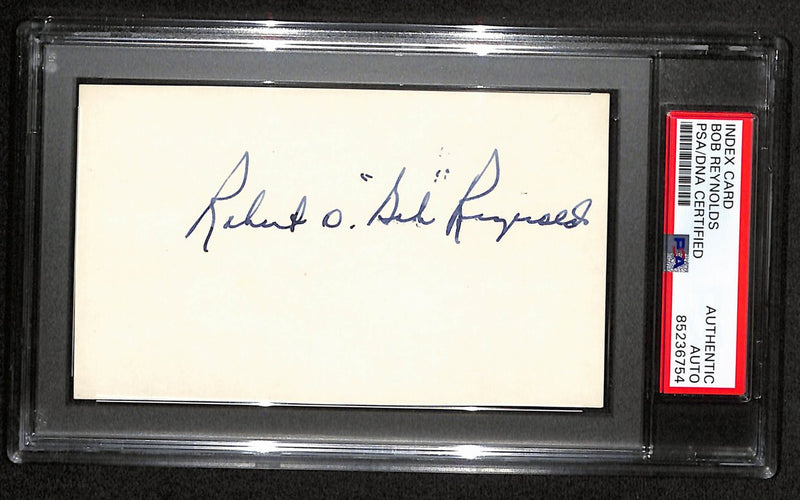 Robert O. "Bob" Reynolds
INDEX CARD
BOB REYNOLDS
PSA/DNA CERTIFIED
PSA
AUTHENTIC
AUTO
85236754